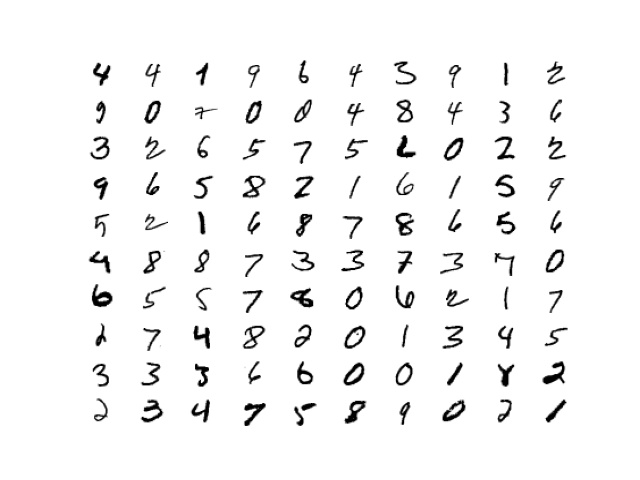 4 4 1 9 6 4 3 9 1 2
9 0 7 0 0 4 8 4 3 6
3 2 6 5 7 5 2 0 2 2
9 6 5 8 2 1 6 1 5 9
5 2 1 6 8 7 8 6 5 6
4 8 8 7 3 3 7 3 7 0
6 5 5 7 8 0 6 2 1 7
2 7 4 8 2 0 1 3 4 5
3 3 3 6 6 0 0 1 8 2
2 3 4 7 5 8 9 0 2 1